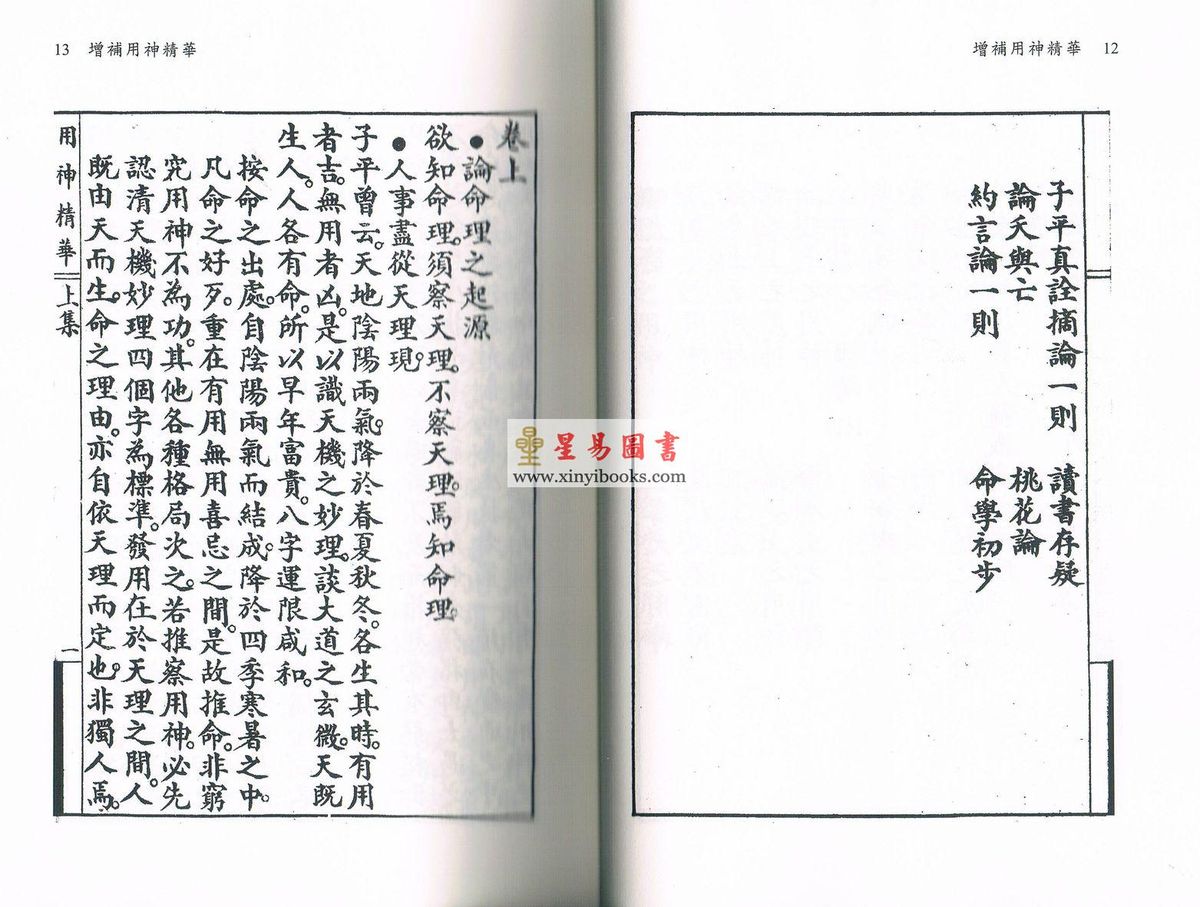 增補用神精華 12
子平真詮摘論一則 讀書存疑
論夭與亡 桃花論
約言論一則 命學初步
13 增補用神精華
卷上
●論命理之起源
欲知命理。須察天理。不察天理。焉知命理。
●人事盡從天理現。
子平曾云。天地陰陽兩氣。降於春夏秋冬。各生其時。有用
者吉。無用者凶。是以識天機之妙理。談大道之玄微。天既
生人。人各有命。所以早年富貴。八字運限咸和。
按命之出處。自陰陽兩氣而結成。降於四季寒暑之中。
凡命之好歹。重在有用無用喜忌之間。是故推命。非窮
究用神不為功。其他各種格局次之。若推察用神。必先
認清天機妙理四個字為標準。發用在於天理之間。人
既由天而生。命之理由。亦自依天理而定也。非獨人焉。
用神精華 上集 一
星易圖書
www.xinyibooks.com